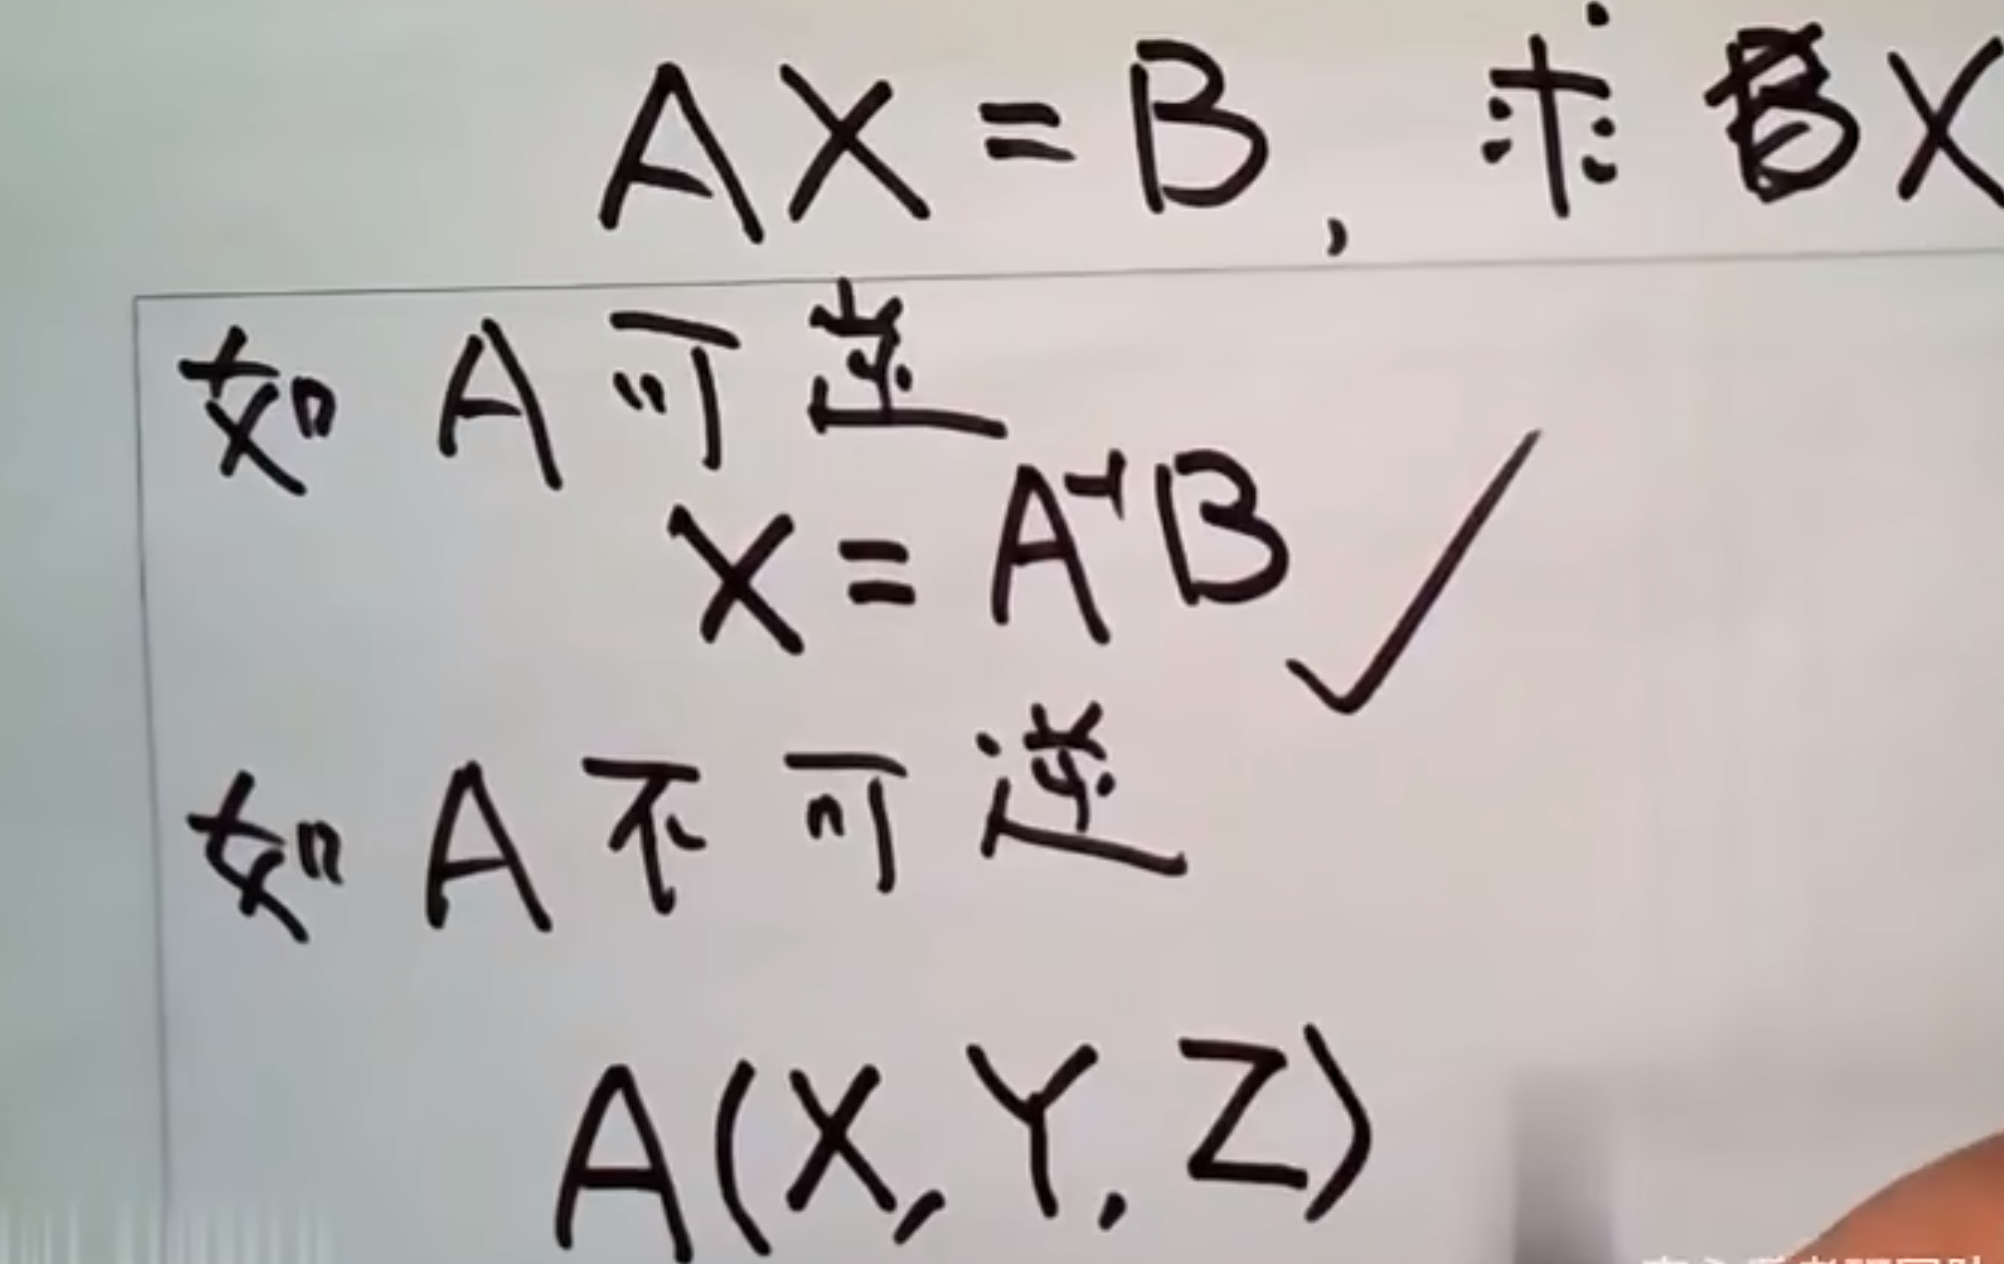 AX=B, 求 X
如 A 可逆
X = A⁻¹B
如 A 不可逆
A(X, Y, Z)